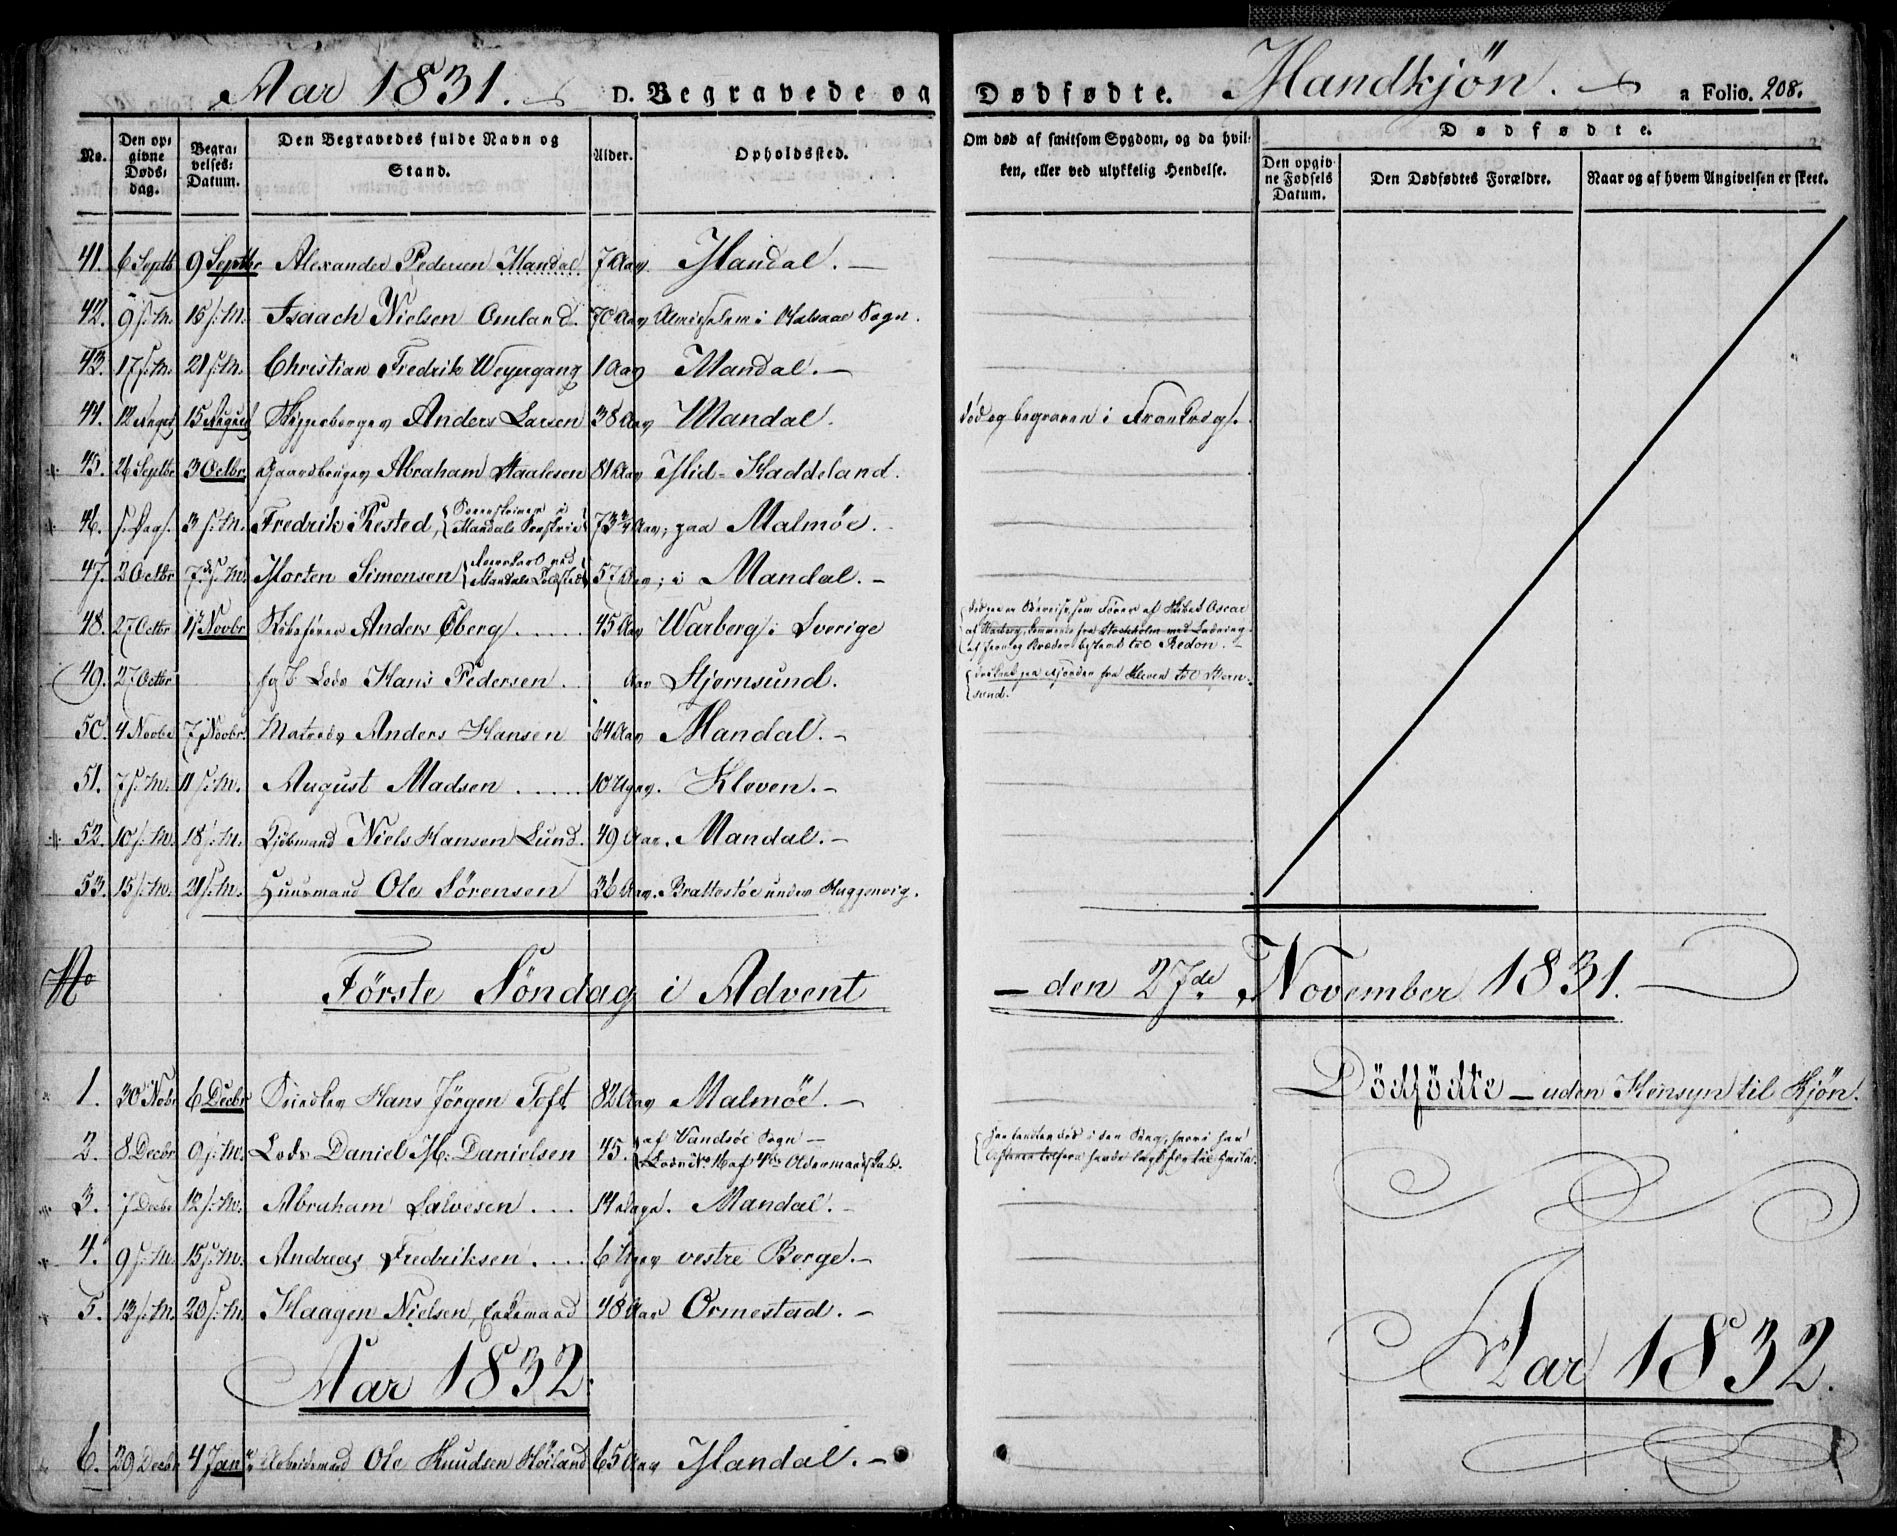 Aar 1831. D. Begravede og Dødfødte. Mandkjön. a Folio. 208.
No.
Den opgivne Dødsdag.
Begravelses-Datum.
Den Begravedes fulde Navn og Stand.
Alder.
Opholdssted.
Om død af smitsom Sygdom, og da hvilken, eller ved ulykkelig Hendelse.
Dødfødte.
Den opgivne Fødsels Datum.
Den Dødfødtes Forældre.
Naar og af hvem Angivelsen er skeet.
41. 6 Septb 9 Septbr Alexander Pedersen Mandal 7 Aar Mandal. —
42. 9 s.M. 15 s.M. Isaach Nielsen Omland. 70 Aar i Halsaae Sogn.
43. 17 s.M. 21 s.M. Christian Fredrik Weyergang 1 Aar Mandal. —
44. 12 August 15 August Anders Larsen 38 Aar Mandal. död og begraven i Frankrig.
45. 26 Septbr 3 Octbr. Gaardbruger Abraham Staalesen 81 Aar Mid-Haddeland.
46. s. Dag. 3 s.M. Fredrik Rested, {Sorenskriver i Mandals} 73 3/4 Aar; paa Malmöe.
47. 2 Octbr 7de s.M. Morten Simonsen {ved Mandals} 57 Aar; i Mandal. —
48. 27 Octbr 17 Novbr Skibsfører Anders Öberg . . . . . 45 Aar Warberg i Sverige {som Fører af Skibet Oscar
af Warberg, kommende fra Stockholm med Ladning
af Jern og Bræder bestemt til Redon. —
49. 27 Octbr Lods Hans Pedersen. Aar Stjernsund. {druknet paa Fjorden fra Kleven til Stern-
sund.
50. 4 Novbr 7 Novbr. Matros Anders Hansen 64 Aar Mandal. —
51. 7 s.M. 11 s.M. August Madsen . . . . . 10 Uger. Kleven. —
52. 10 s.M. 18 s.M. Kjöbmand Niels Hansen Lund. 49 Aar. Mandal. —
53. 15 s.M. 21 s.M. Huusmand Ole Sörensen 36 Aar. Brattestöe under Skaggenvig.
No Förste Söndag i Advent — den 27de November 1831.
Dödfödte — uden Hensyn til Kjön.
1. 30 Nobr 6 Decbr Hans Jörgen Toft 82 Aar Malmöe. —
2. 8 Decbr 9 s.M. Lods Daniel M. Danielsen 45. {af Vandsöe Sogn —
Lods No 16 af 4de Oldermandskab.
3. 7 Decbr 12 s.M. Abraham Salvesen . . . 14 Dage. Mandal. —
4. 9 s.M. 15 s.M. Andreas Fredriksen . . . . 6 Uger vestre Berge. —
5. 13 s.M. 20 s.M. Haagen Nielsen, Enkemand 48 Aar Ormestad. —
Aar 1832.
Aar 1832.
6. 29 Decbr 4 Jan Arbeidsmand Ole Knudsen Höiland 65 Aar Mandal. —